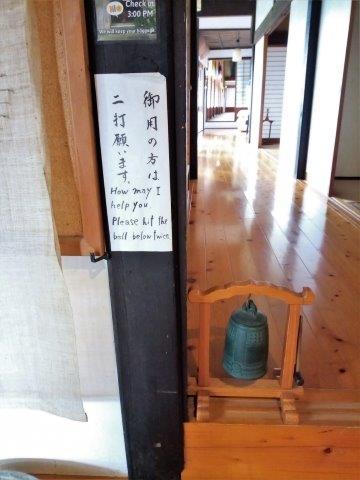 Check in
3:00 PM
We will keep your baggage
御用の方は
二打願います。
How may I
help you
Please hit the
bell below twice